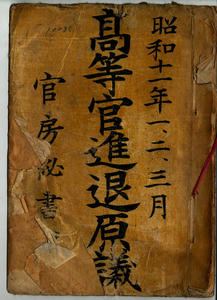 昭和十一年一、二、三月
高等官進退原議
官房秘書